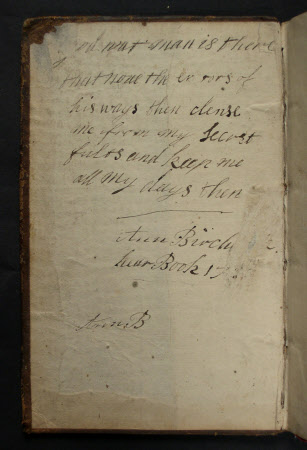 oh wat man is there
that none the er rors of
his ways then clense
me from my Secret
fults and keep me
all my days then
Ann Birch
hear Book 17
Ann B